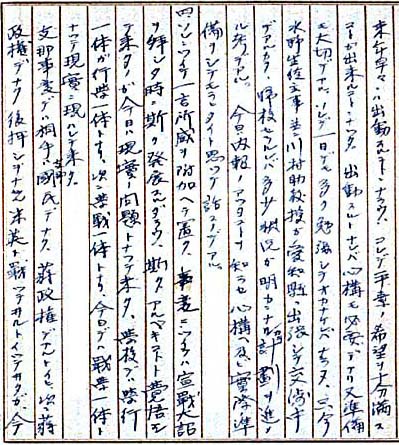 来年早々ニ出動スルコトニナラウ、コレデ平素ノ希望ヲ十分満ス
コトガ出来ルコトニナツタ、出動スルトナレバ心構モ必要デアリ又準備
モ大切デアル、ソレデ一日デモ多ク勉強シテオカナケレバナラヌ、只今
水野生徒主事並川村助教授ガ愛知県ニ出張シテ交渉中
デアルカラ帰校セラルレバ多少状況ガ明カトナリ計画ヲ進メ
ラレル、今日内報ノアツタコトヲ知ラセ心構ヘ及ビ實際準
備ヲシテモライタイト思ツテ話ス
四、ソレニツイテ一言所感ヲ附加ヘテ置ク、事変ニツイハ宣戦大詔
ヲ拝シタ時ニ斯ク発展スルダラウ、斯クアルベキコトト覚悟シ
テ来タノガ今日ハ現實ノ問題トナツテ来タ、学校デハ学行
一体ガ行学一体トナリ、次ニ学戦一体トナリ、今日デハ戦学一体ト
ナツテ現實ニ現ハレテ来タ
支那事変デハ相手ハ支那國民デナク、蒋政権デアルトイヒ次ニ蒋
政権デナク後押シヲナス米英ト戦ツテヰルトイツテヰタガ、今